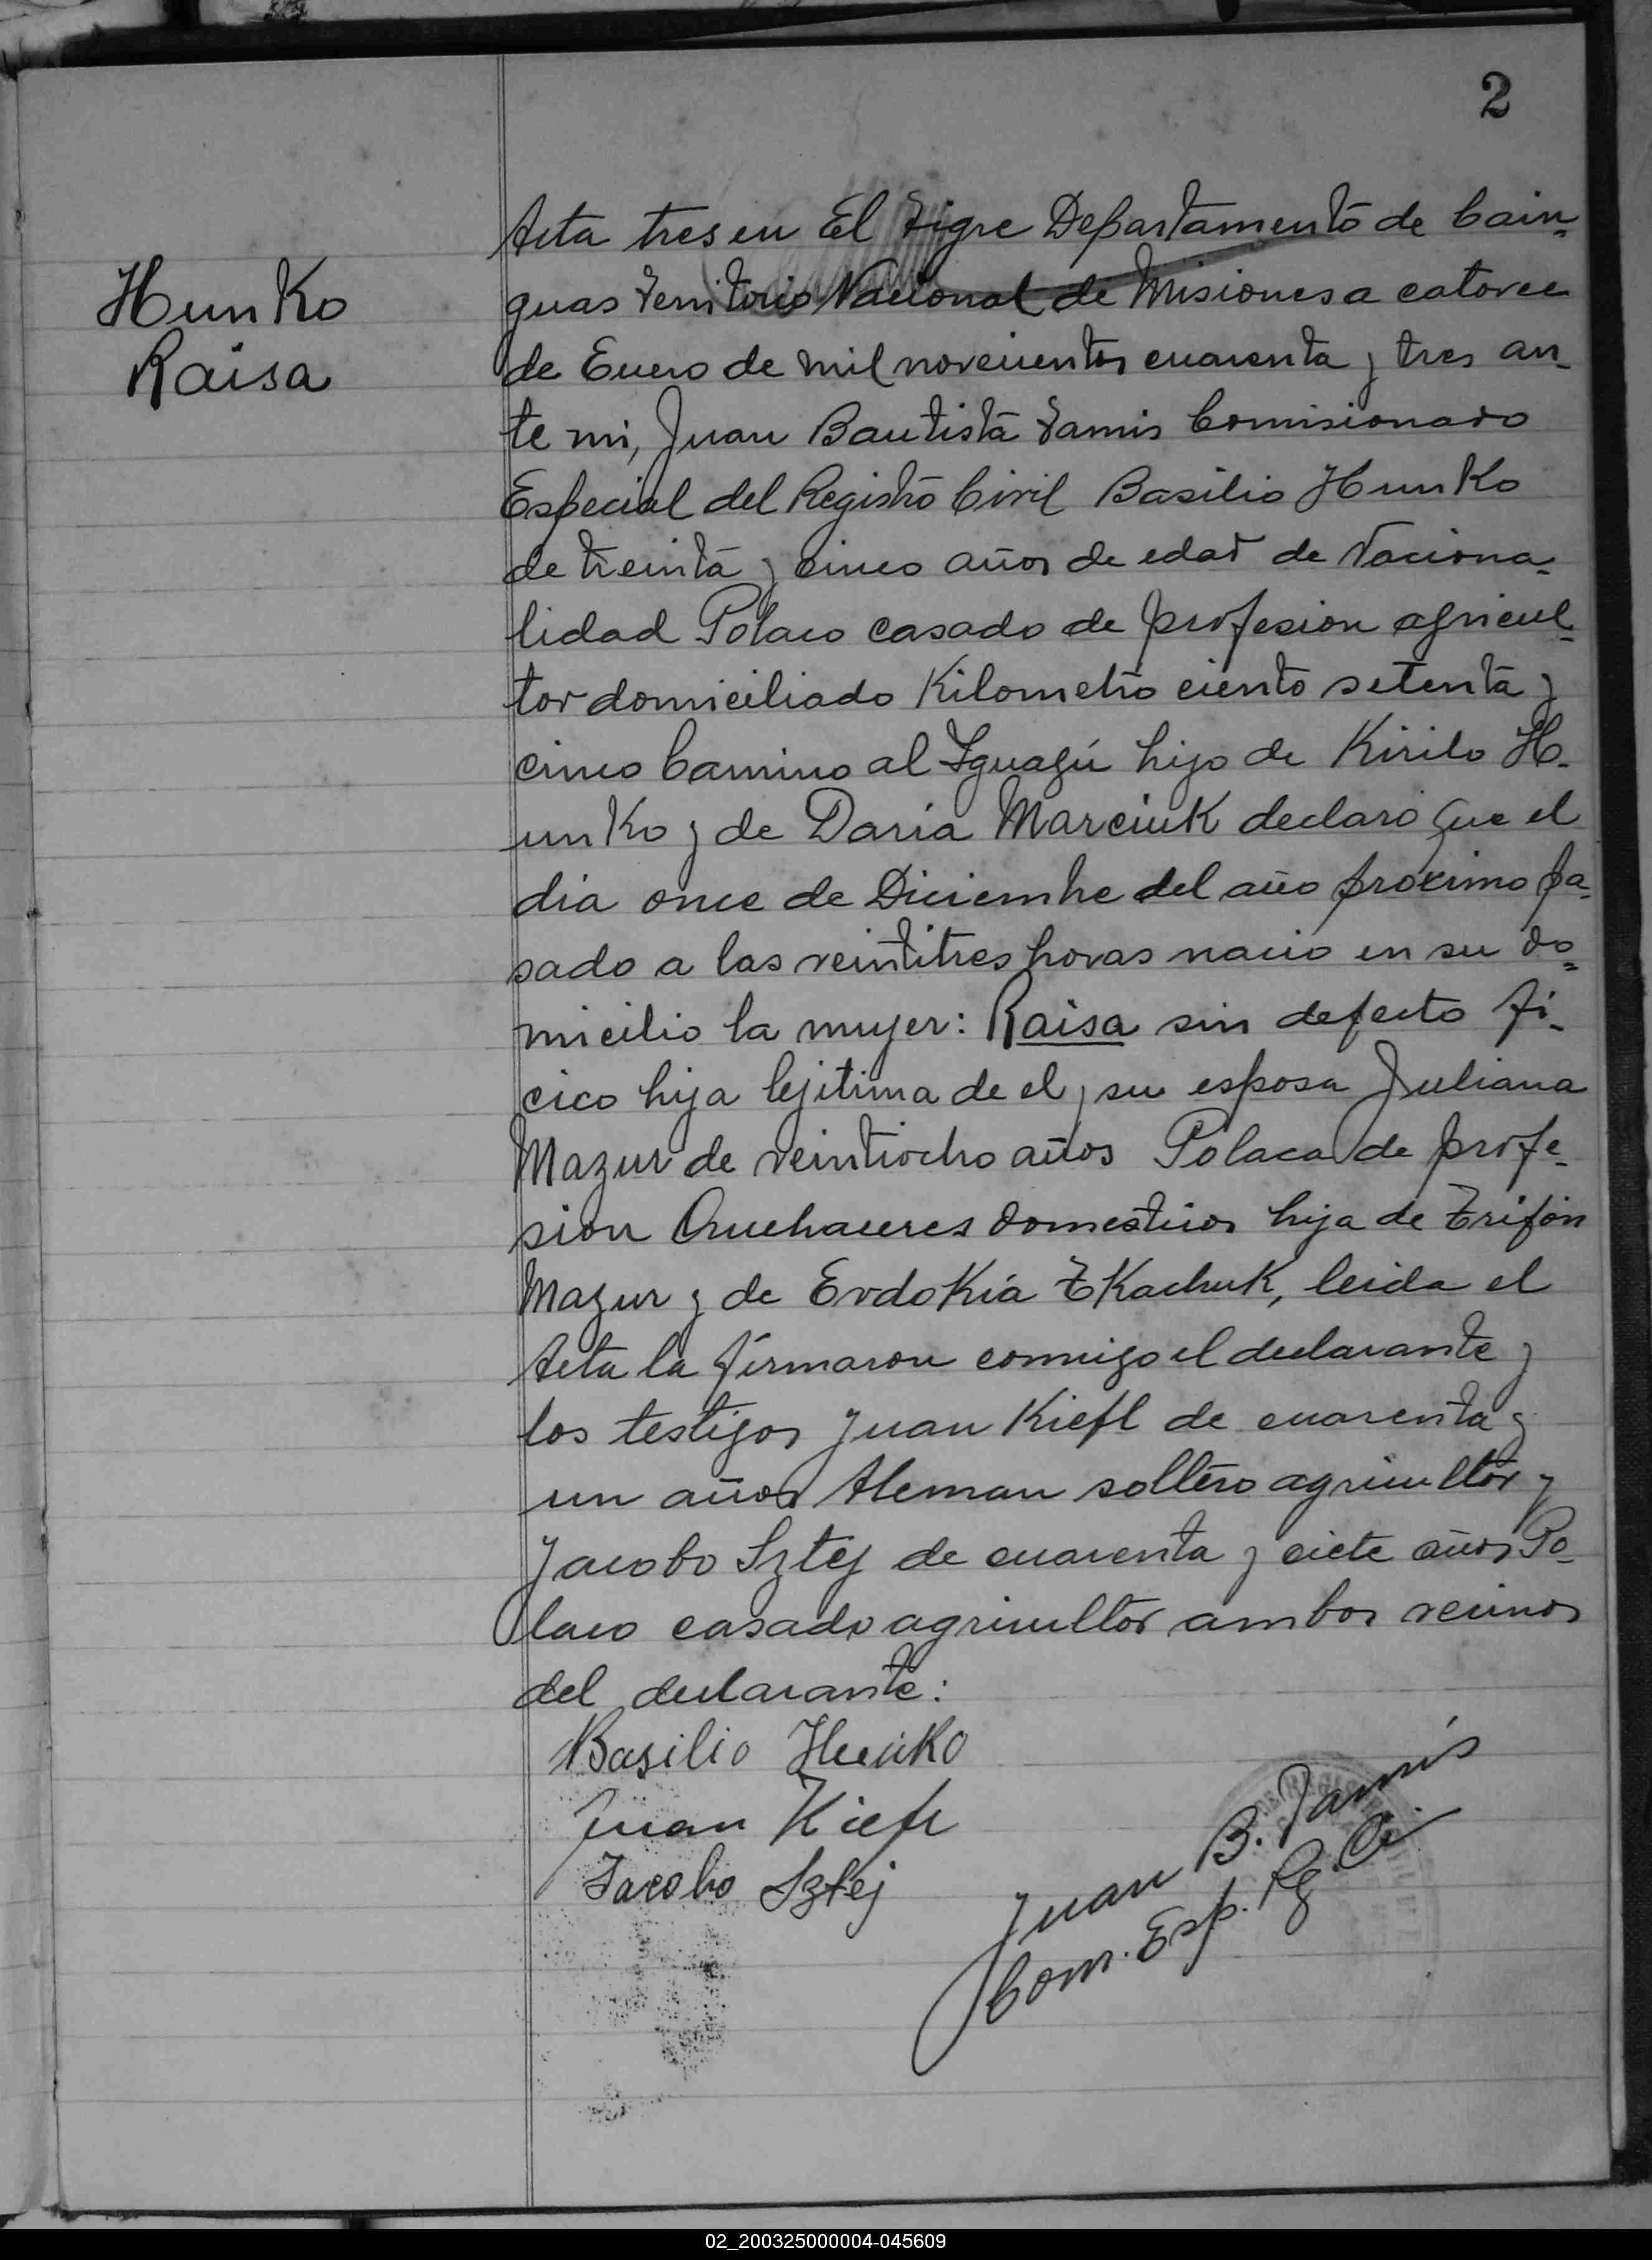 2
Hunko
Raisa
Acta tres en El Tigre Departamento de Cain-
guas Territorio Nacional de Misiones a catorce
de Enero de mil novecientos cuarenta y tres an-
te mi, Juan Bautista Tamis Comisionado
Especial del Registro Civil Basilio Hunko
de treinta y cinco años de edad de Naciona-
lidad Polaco casado de profesion agricul-
tor domiciliado Kilometro ciento setenta y
cinco Camino al Iguazú hijo de Kirilo H-
unko y de Daria Marciuk declaro que el
dia once de Diciembre del año proximo pa-
sado a las veintitres horas nacio en su do-
micilio la mujer: Raisa sin defecto fi-
cico hija lejitima de el y su esposa Juliana
Mazur de veintiocho años Polaca de profe-
sion Quehaceres domesticos hija de Trifon
Mazur y de Evdokia Tkachuk, leida el
Acta la firmaron conmigo el declarante y
los testigos Juan Kiefl de cuarenta y
un años Aleman soltero agricultor y
Jacobo Sztej de cuarenta y ciete años Po-
laco casado agricultor ambos vecinos
del declarante:
Basilio Hunko
Juan Kiefl
Jacobo Sztej
Juan B. Tamis
Com. Esp. Rg. Ci.
02_200325000004-045609